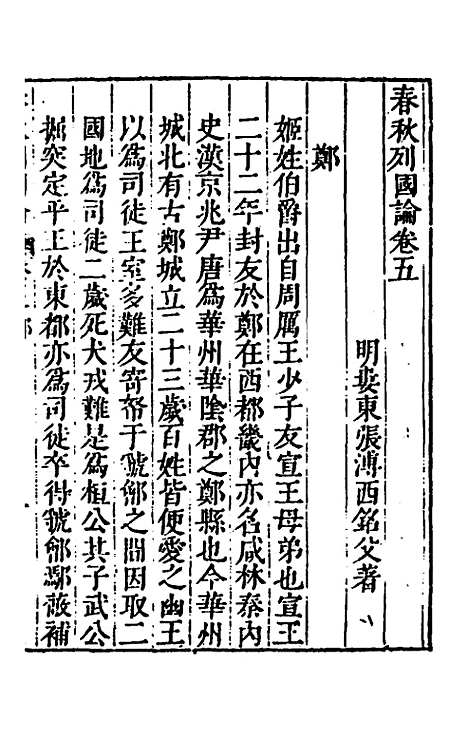 春秋列國論卷五
明婁東張溥西銘父著
鄭
姬姓伯爵出自周厲王少子友宣王母弟也宣王
二十二年封友於鄭在西都畿內亦名咸林秦內
史漢京兆尹唐爲華州華陰郡之鄭縣也今華州
城北有古鄭城立二十三歲百姓皆便愛之幽王
以爲司徒王室多難友寄帑于虢鄶之間因取二
國地爲司徒二歲死犬戎難是爲桓公其子武公
掘突定平王於東都亦爲司徒卒得虢鄶鄢蔽補